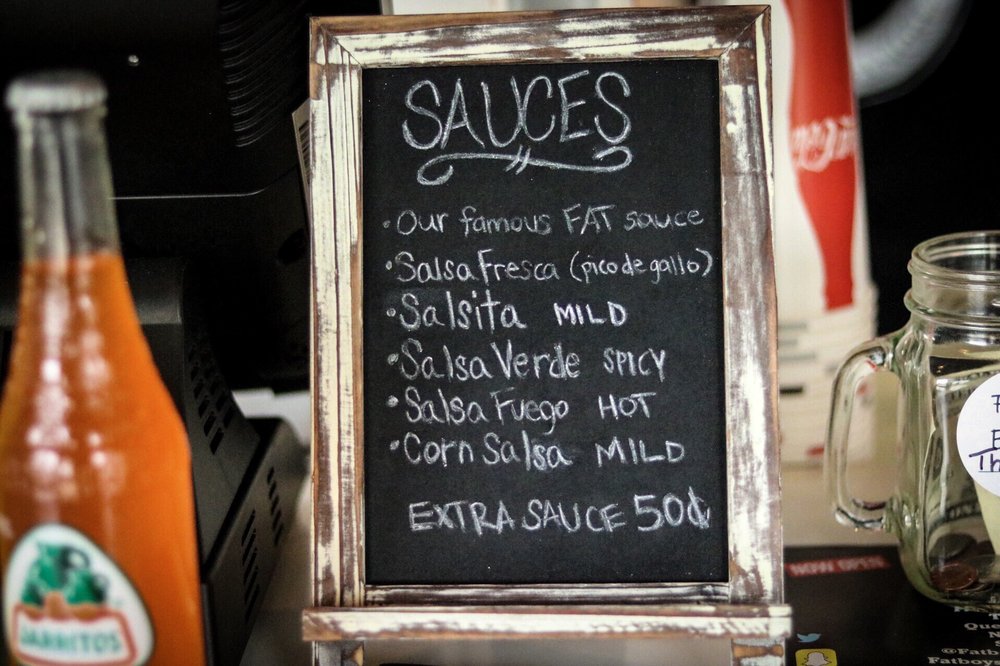 SAUCES
• Our famous FAT sauce
• Salsa Fresca (pico de gallo)
• Salsita MILD
• Salsa Verde SPICY
• Salsa Fuego HOT
• Corn Salsa MILD
EXTRA SAUCE 50¢
JARRITOS
NOW OPEN